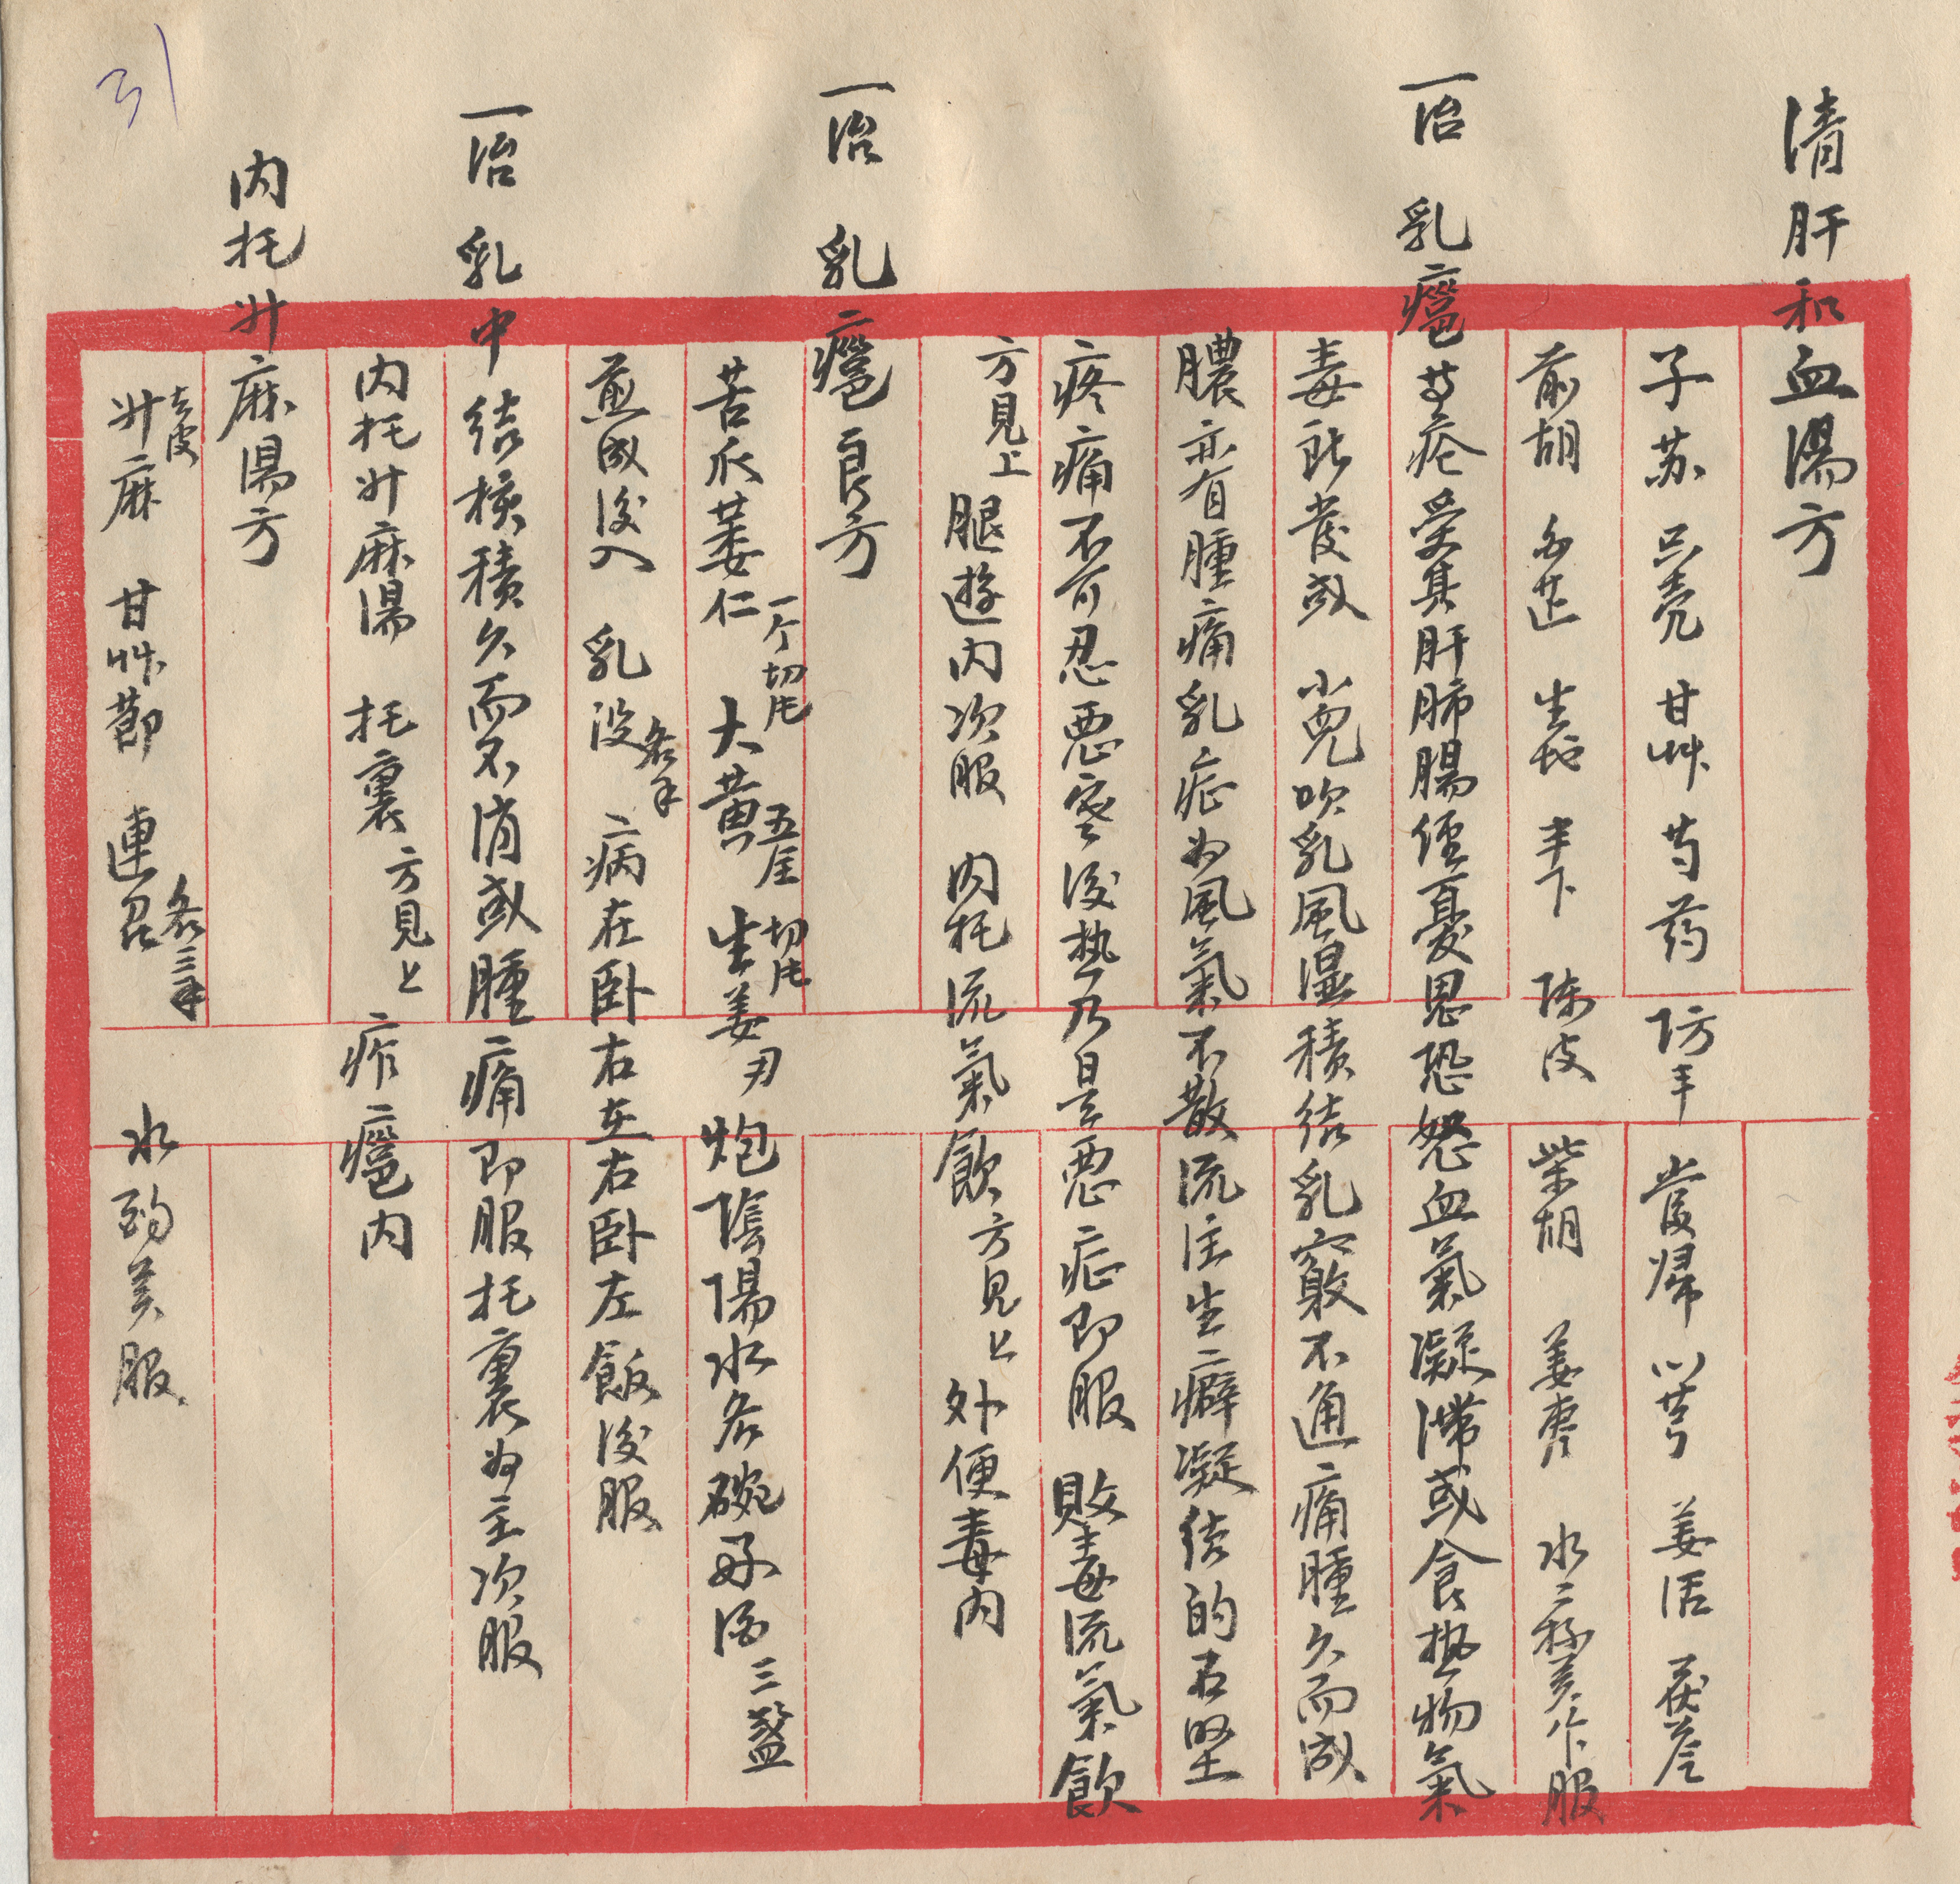 清肝和血湯方
子苏 只壳 甘艸 芍药 防丰 當帰 川芎 姜活 茯苓
前胡 白芷 生地 半下 陈皮 柴胡 姜枣 水二杯煎作服
一治 乳癰 其疮受其肝肺腸經憂思恐怒血氣凝滞或食热物氣
毒所發或 小兒吹乳風湿積结乳竅不通痛腫久而成
膿亦有腫痛乳症为風氣不散流注生癖凝结的石堅
疼痛不可忍悪寒後热乃是悪症即服 敗毒流氣飲
方見上 腿遊内次服 内托流氣飲 方見上 外便毒内
一治 乳癰良方
苦瓜萋仁 一个切片 大黄 五厘 生姜 切片 刃 炮陰陽水各碗好酒三盞
煎成後入 乳没 各一錢 病在卧右左右卧左飯後服
一治 乳中结核積久而不消或腫痛即服托裏为主次服
内托升麻湯 托裏 方見上 痄癰内
内托升麻湯方
升麻 去皮 甘艸節 連召 各三錢 水酌煎服
31